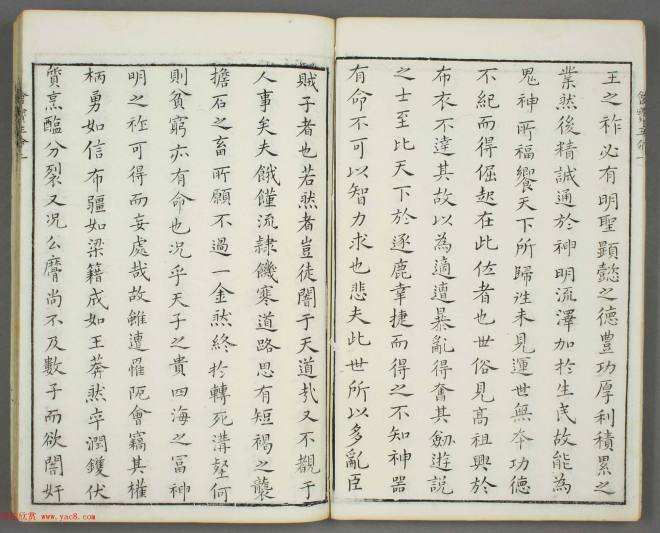 王之祚必有明聖顯懿之德豊功厚利積累之
業然後精誠通於神明流澤加於生民故能為
鬼神所福饗天下所歸往未見運世無本功德
不紀而得倔起在此位者也世俗見高祖興於
布衣不達其故以為適遭暴亂得奮其劒遊說
之士至比天下於逐鹿幸捷而得之不知神器
有命不可以智力求也悲夫此世所以多亂臣
賊子者也若然者豈徒闇于天道㢤又不覩于
人事矣夫餓饉流隸饑寒道路思有短褐之襲
擔石之畜所願不過一金然終於轉死溝壑何
則貧窮亦有命也况乎天子之貴四海之富神
明之祚可得而妄處哉故雖遭罹阨會竊其權
柄勇如信布彊如梁籍成如王莽然卒潤鑊伏
質烹醢分裂又况公麿尚不及數子而欲闇奸
www.yac8.com